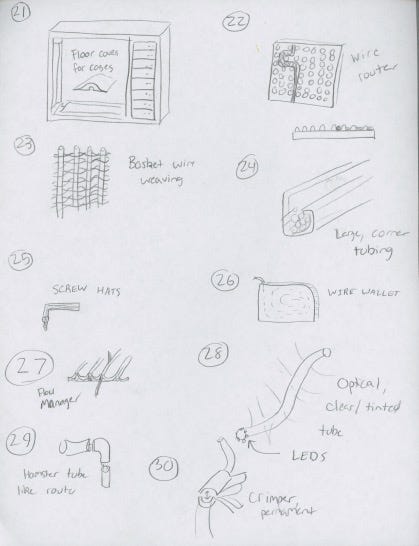 21
Floor coves
for cases
22
Wire
router
23
Basket wire
weaving
24
Large, corner
tubing
25
SCREW HATS
26
WIRE WALLET
27
Manager
28
Optical,
clear/tinted
tube
LEDS
29
Hamster tube
like route
30
Crimper,
permanent